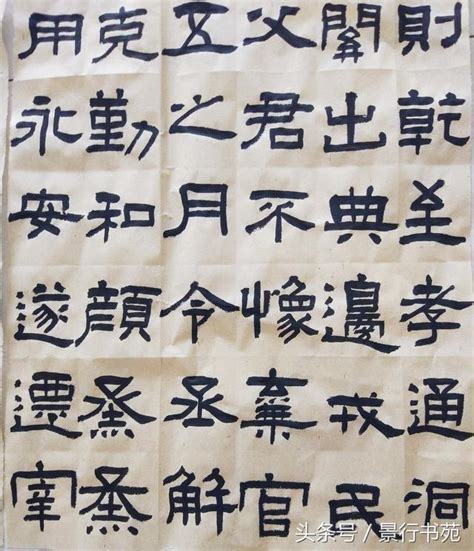 則乾至孝通洞
開出典邊戎民
父君不棄官
五之月令丞解
克勤和顏烝烝
用永安遂遷宰
头条号/景行书苑